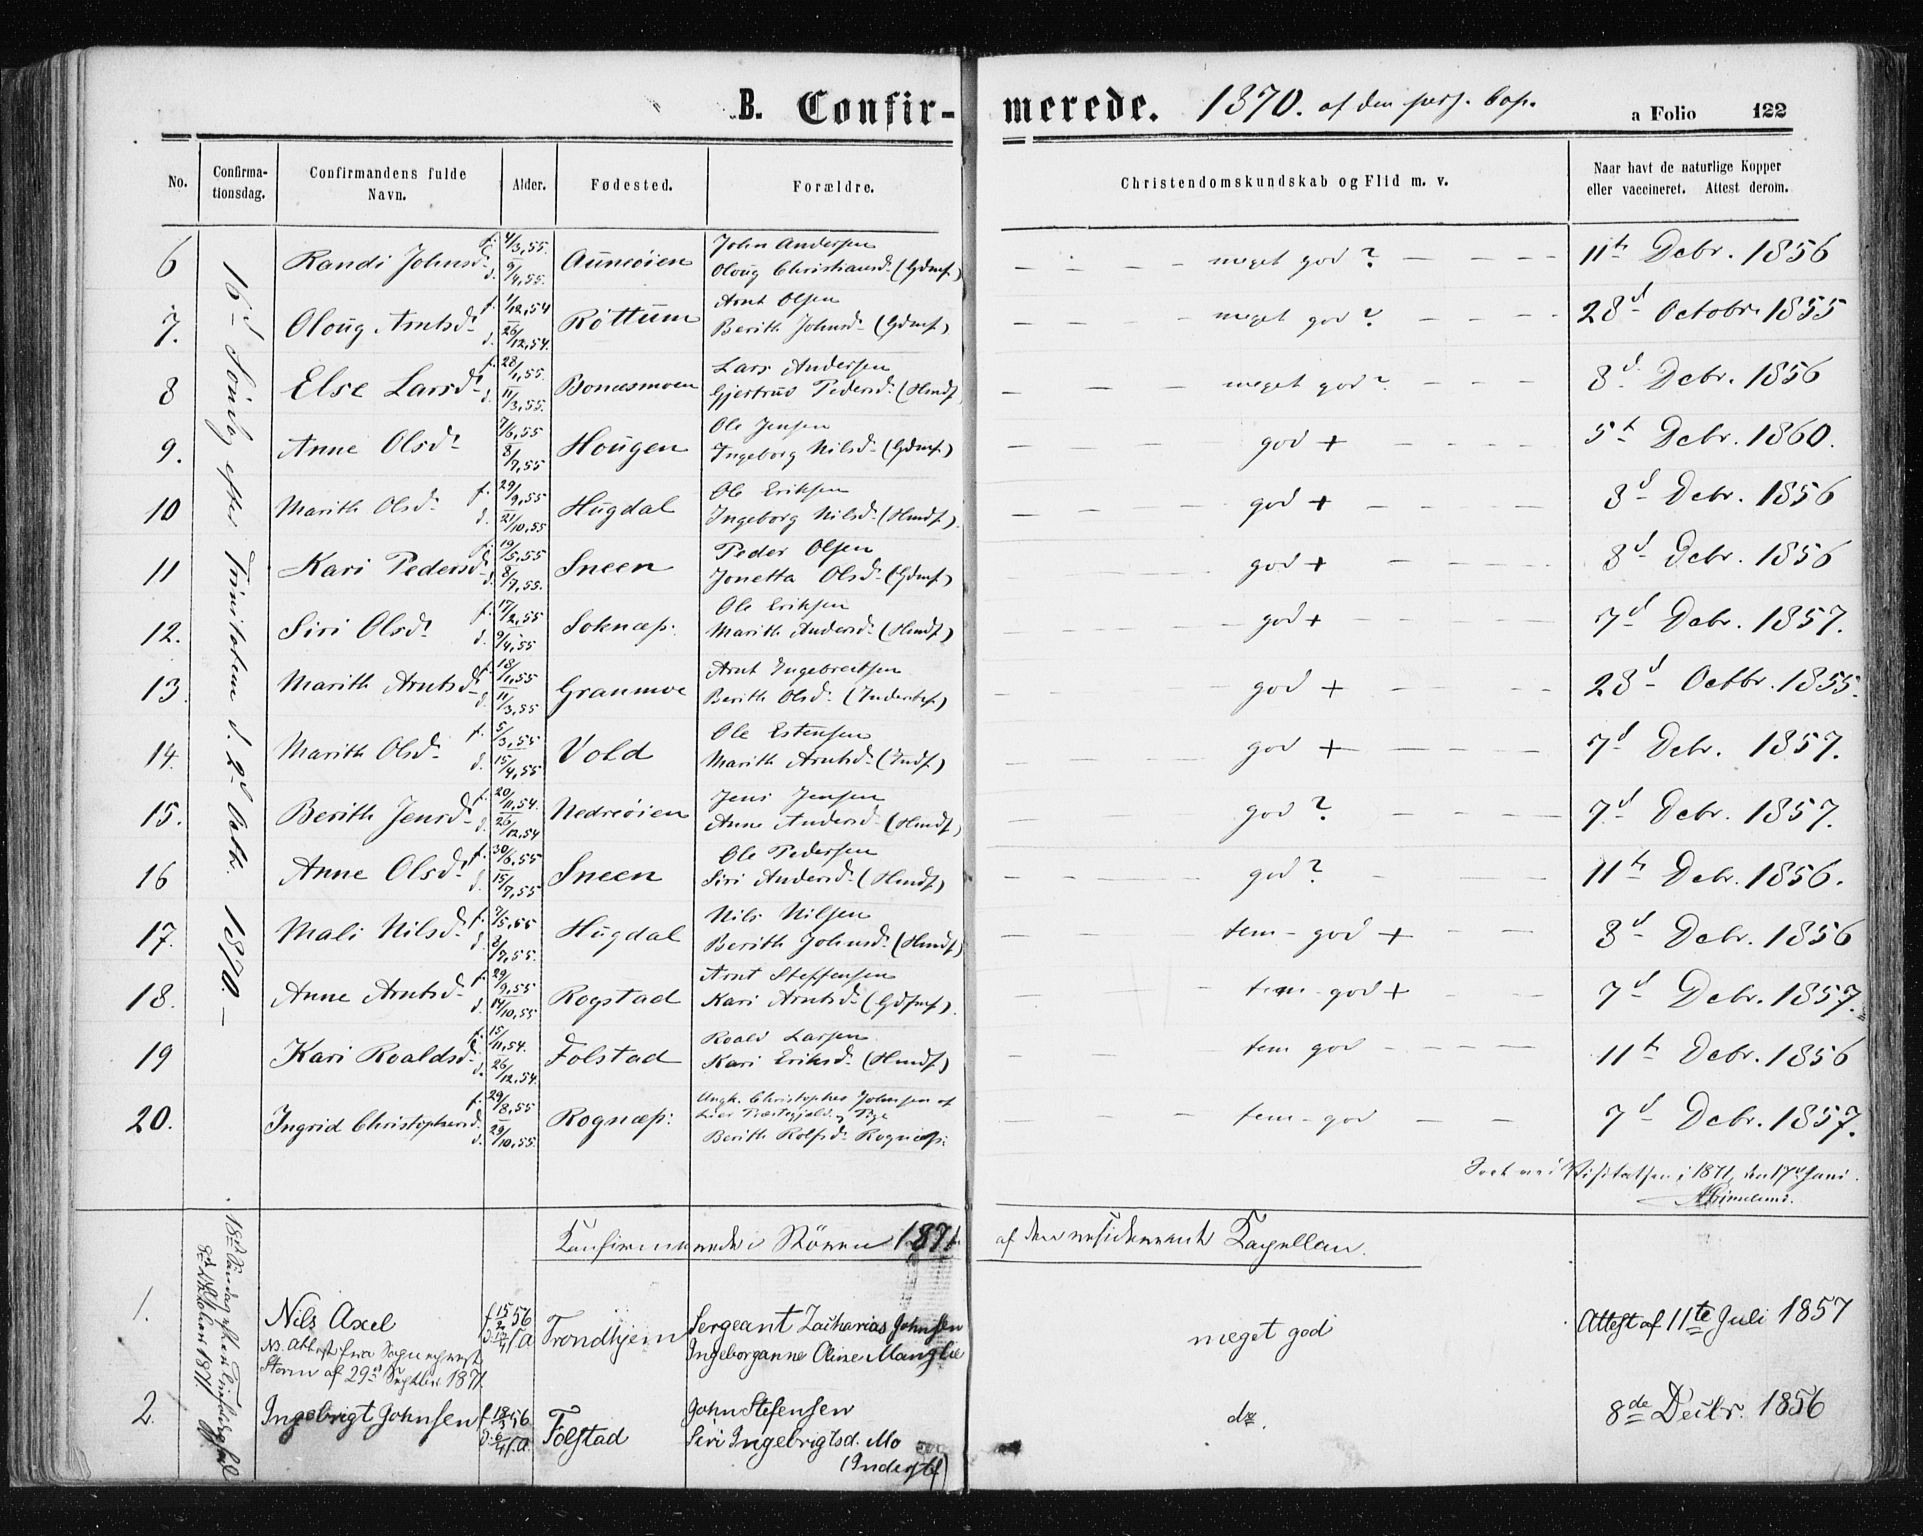 B. Confir- merede. 1870. af den pers. Cap. a Folio 122
No. Confirma-tionsdag. Confirmandens fulde Navn. Alder. Fødested. Forældre. Christendomskundskab og Flid m. v. Naar havt de naturlige Kopper eller vaccineret. Attest derom.
16d Søndag efter Trinitatem d. 2d Octb. 1870. –
6 Randi Johnsd. f. 4/3,55. d. 9/4,55. Auneøien John Andersen meget god? 11te Debr. 1856
Oloug Christiansd. (Gdmf)
7. Oloug Arntsd. f. 1/12,54 d. 26/12,54. Röttum Arnt Olsen meget god? 28d Octobr. 1855
Berith Johnsd. (Gdmf)
8 Else Larsd. f. 28/1,55. d. 11/3,55. Bonæsmoen Lars Andersen meget god? 8d Debr. 1856
Gjertrud Pedersd. (Hmdf)
9. Anne Olsd. 7/6,55 8/7,55 Hougen Ole Jensen god + 5te Debr. 1860.
Ingeborg Nilsd. (Gdmf)
10 Marith Olsd. f. 29/9,55 d. 21/10,55 Hugdal Ole Eriksen god + 8d Debr. 1856
Ingeborg Nilsd. (Hmdf).
11 Kari Pedersd. f. 19/5,55 d. 8/7,55. Sneen Peder Olsen god + 8d Debr. 1856
Jonetta Olsd. (Gdmf)
12. Siri Olsd. f. 17/2,55 d. 9/4,55 Soknæs: Ole Eriksen god + 7d Debr. 1857.
Marith Andersd. (Hmdf)
13. Marith Arntsd. f. 18/1,55 d. 11/3,55 Granmoe Arnt Engebrectsen god + 28d Octbr. 1855.
Berith Olsd. (Inderstf)
14. Marith Olsd. f. 5/3,55 d. 15/4,55 Vold Ole Estensen god + 7d Debr. 1857.
Marith Arntsd. (Indf)
15. Berith Jensd. f. 20/11,54. d. 26/12,54 Nedreøien Jens Jensen god? 7d Debr. 1857.
Anne Andersd. (Hmdf)
16 Anne Olsd. f. 30/6,55 d. 15/7,55 Sneen Ole Pedersen god? 11te Debr. 1856.
Siri Andersd. (Hmdf)
17. Mali Nilsd. f. 7/5,55 d. 8/7,55. Hugdal Nils Nilsen tem– god + 8d Debr. 1856
Berith Johnsd. (Hmdf)
18. Anne Arntsd. f. 29/9,55 d. 14/10,55 Rogstad Arnt Steffensen tem– god + 7d Debr. 1857.
Kari Arntsd. (Gdfmf).
19 Kari Roaldsd. f. 15/11,54. d. 26/12,54. Folstad Roald Larsen tem god 11te Debr. 1856
Kari Eriksd. (Hmdf)
20. Ingrid Christophersd. f. 29/8,55 d. 29/10,55. Rognæs: Ungk. Christopher Johnsen af tem– god 7d Debr. 1857.
Lier Præstegjeld. og Pge
Berith Rolfsd. Rognæs:
Visitatsen i 1871, den 17d Juni.
Konfirmerede i Støren 1871. af den residerende Kapellan.
18de Søndag efter Trinitatis
8de Oktober 1871.
1. Nils Axel f. 15/2 56 Trondhjem Sergeant Zacharias Johnsen meget god Attest af 11te Juli 1857
NB. Attest fra Sognepræst Ingeborganne Oline Manghe
Storm af 29de Septbr. 1871.
2. Ingebrigt Johnsen f. 18/3 56. d. 6/4 s. A. Folstad John Stefensen do. 8de Decbr. 1856
Siri Ingebrigtsd. Mo
(Inderstf)